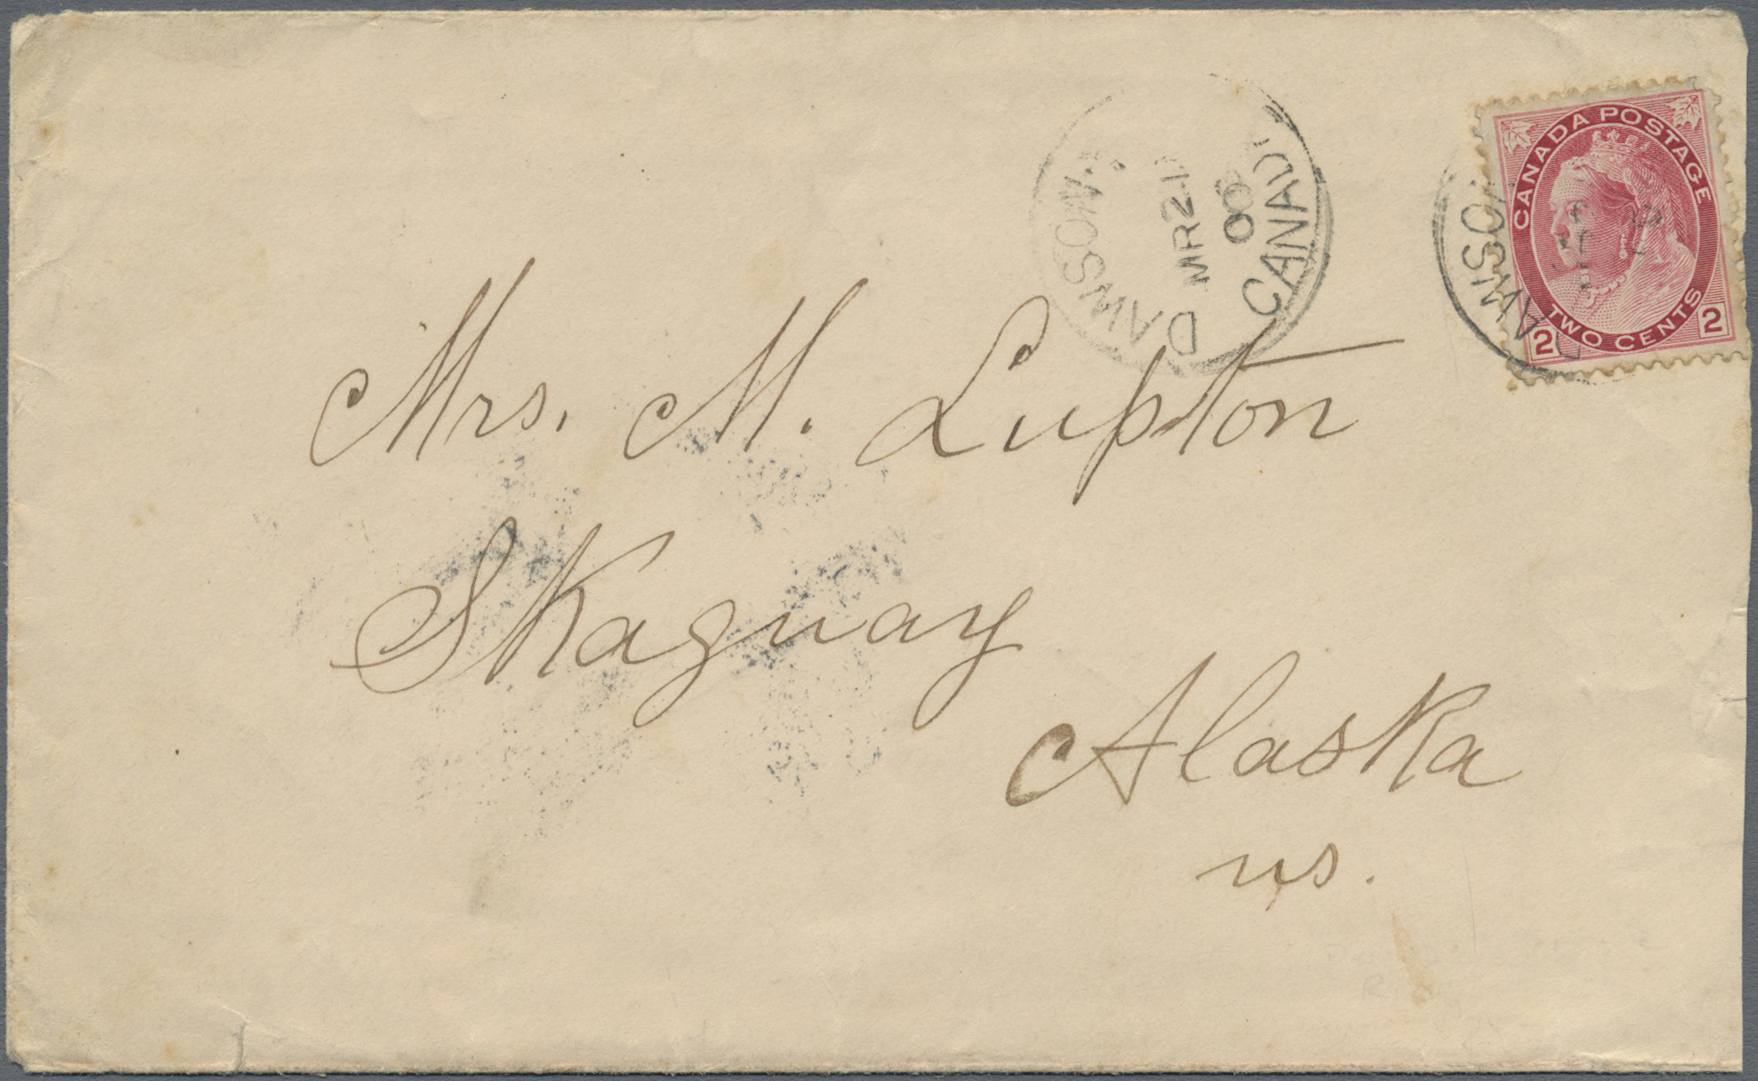 DAWSON.
MR 21
00
CANADA
CANADA POSTAGE
TWO CENTS
2 2
DAWSON
Mrs. M. Lupton
Skaguay
Alaska
us.